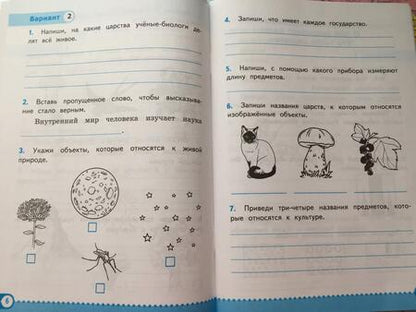 Вариант 2
1. Напиши, на какие царства учёные-биологи де-
лят всё живое.
2. Вставь пропущенное слово, чтобы высказыва-
ние стало верным.
Внутренний мир человека изучает наука
.
3. Укажи объекты, которые относятся к живой
природе.
6
4. Запиши, что имеет каждое государство.
5. Запиши, с помощью какого прибора измеряют
длину предметов.
6. Запиши названия царств, к которым относятся
изображённые объекты.
7. Приведи три-четыре названия предметов, кото-
рые относятся к культуре.